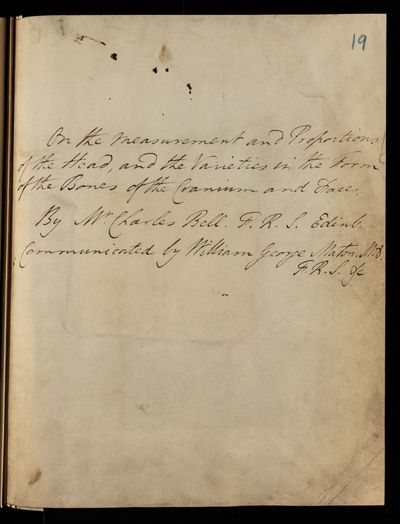 19
On the measurement and Proportions
of the Head, and the Varieties in the Form
of the Bones of the Cranium and Face.
By Mr Charles Bell. F. R. S. Edinb.
Communicated by William George Maton. M.D.
F.R.S. &c